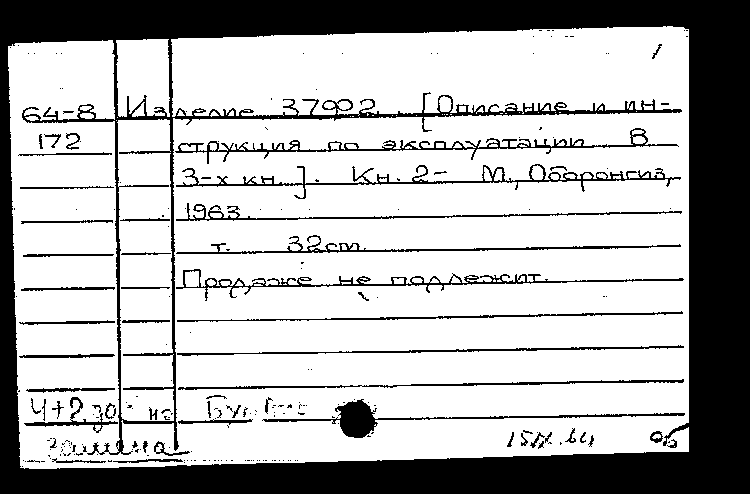 1
64-8 Изделие 37902. [Описание и ин-
172 струкция по эксплуатации В
3-х кн.]. Кн. 2- М., Оборонгиз,
1963.
т. 32см.
Продаже не подлежит.
4+2 на
замена 15/IX.64 об